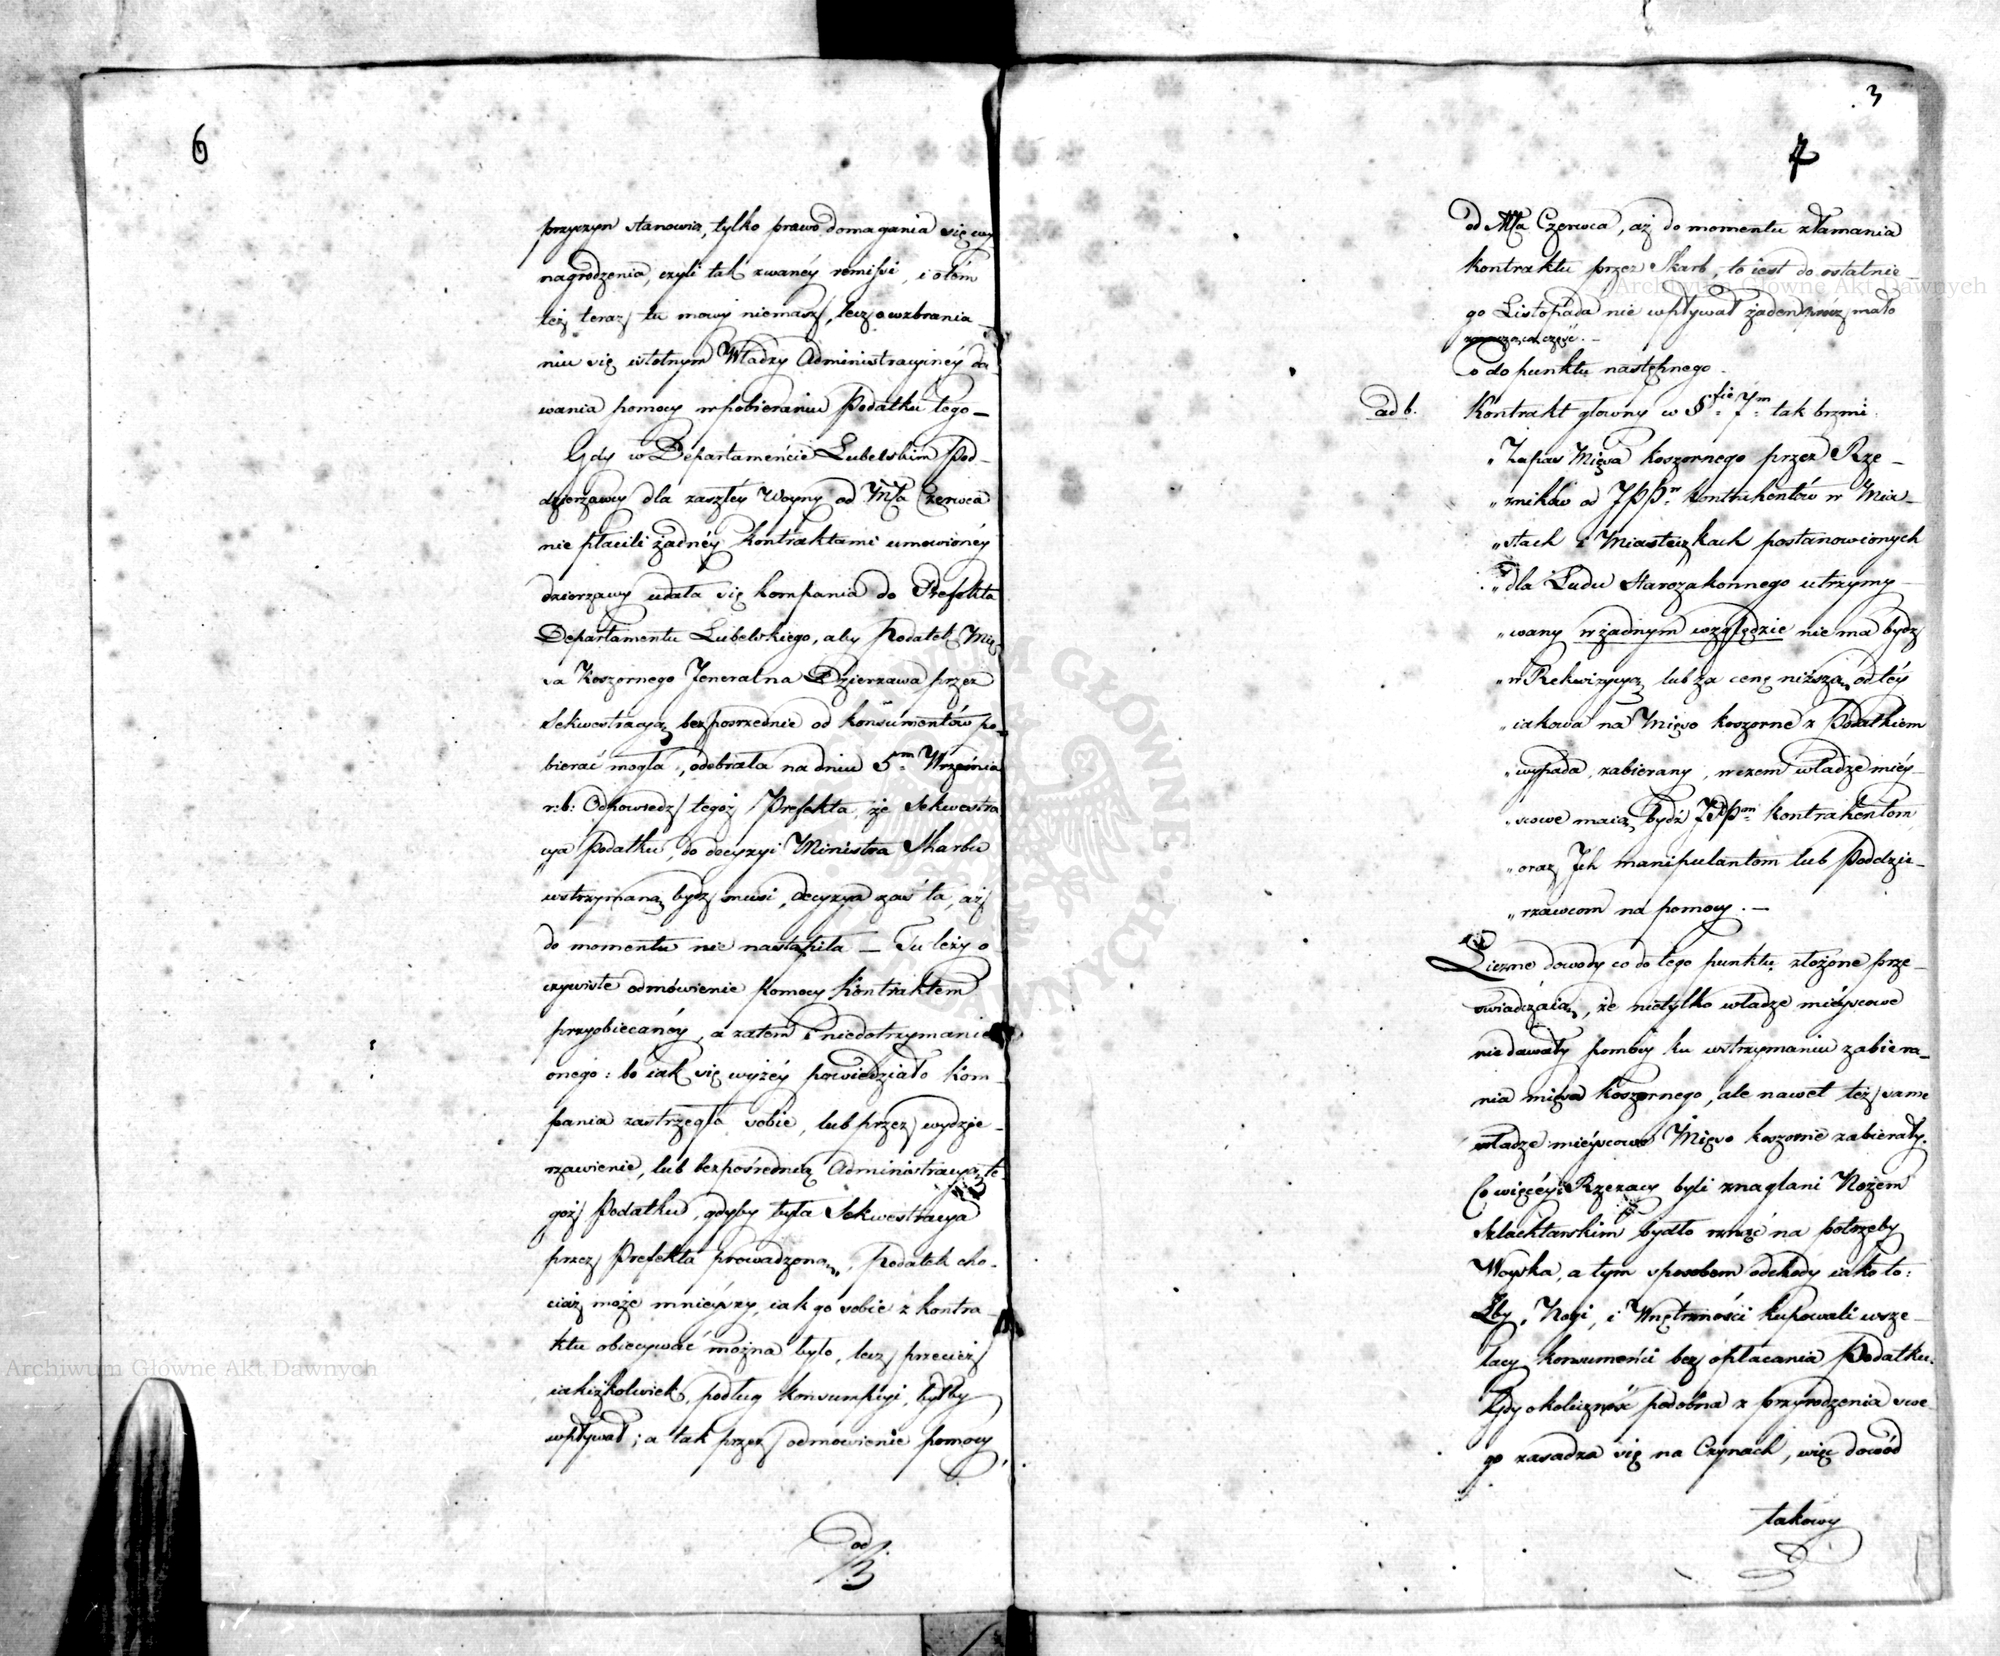 6
przyczyn stanowią, tylko prawo domagania się wy
nagrodzenia, czyli tak zwanéy remissi, i o tém
też teraz tu mowy niemasz, lecz o wzbrania
niu się istotnym Władzy Administracyinéy da-
wania pomocy w pobieraniu Podatku tego –
Gdy w Departamencie Lubelskim Pod-
dzierzawcy dla zaszłéy Woyny od Mca Czerwca
nie płacili żadnéy kontraktami umowionéy
dzierzawy udała się kompania do Prefekta
Departamentu Lubelskiego, aby Podatek Mię
sa Koszernego Jeneralna Dzierzawa przez
Sekwestracyą bezposrzednie od konsumentów po-
bierać mogła, odebrała na dniu 5m Września
r: b: Odpowiedz tegoż Prefekta, że Sekwestra
cya Podatku, do decyzyi Ministra Skarbu
wstrzymaną bydz musi, decyzya zaś ta, aż
do momentu nie nastąpiła — Tu leży o
czywiste odmówienie pomocy Kontraktem
przyobiecanéy, a zatem i niedotrzymanie
onego: bo iak się wyżéy powiedziało Kom-
pania zastrzegła sobie, lub przez wydzie-
rzawienie, lub bezpośrednią Administracyą te-
goż Podatku, gdyby była Sekwestracya
przez Prefekta prowadzoną, Podatek cho-
ciaż może mnieyszy, iak go sobie z kontra-
ktu obiecywać można było, lecz przecież
iakiżkolwiek, podług konsumpcyi, byłby
wpływał; a tak przez odmowienie pomocy,
od
3
7
od Mca Czerwca, aż do momentu złamania
kontraktu przez Skarb, to iest do ostatnie
go Listopada nie wpływał żaden prócz mało
znacząca część. –
Co do punktu następnego.
ad b. Kontrakt głowny w §fie 7m tak brzmi:
„Zapas Mięsa koszernego przez Rze-
„zników od JPPw Kontrahentów w Mia-
„stach i Miasteczkach postanowionych
„dla Ludu Starozakonnego utrzymy-
„wany w żadnym względzie nie ma bydz
„w Rekwizycyą lub za cenę niższą, od téy
„iakowa na Mięso koszerne z Podatkiem
„wypada, zabierany, w czem władze miéy-
„scowe maią bydź JPPm Kontrahentom,
„oraz Jch manipulantom lub Poddzie-
„rzawcom na pomocy. —
Liczne dowody co do tego punktu złożone prze-
świadczaią, że nietylko władze mieyscowe
nie dawały pomocy ku wstrzymaniu zabiera-
nia mięsa koszernego, ale nawet też same
władze mieyscowe Mięso koszerne zabierały.
Co więcéy: Rzezacy byli znaglani Nożem
Szlachtarskim bydło rznąć na potrzeby
Woyska, a tym sposobem odchody iako to:
Łby, Nogi, i Wnętrzności kupowali wsze-
lacy konsumenci bez opłacania Podatku.
Gdy okoliczność podobna z przyrodzenia swe-
go zasadza się na Czynach, więc dowód
takowy